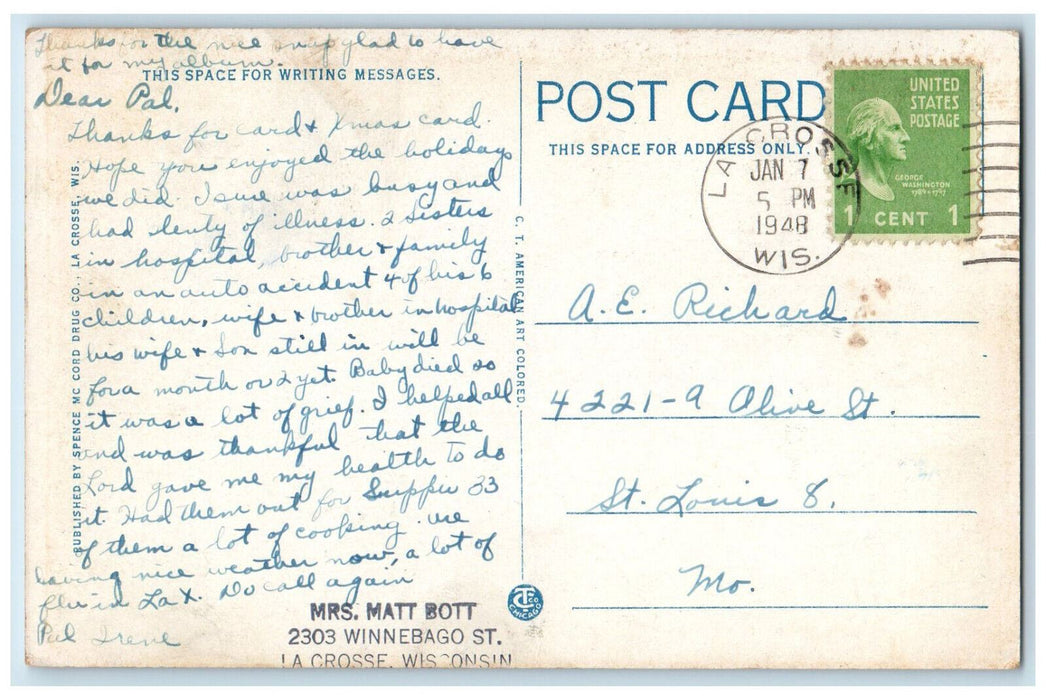 Thanks for the nice snap glad to have
it for my album.
THIS SPACE FOR WRITING MESSAGES.
Dear Pal,
Thanks for card & Xmas card.
Hope you enjoyed the holidays
we did. I sure was busy and
had lenty of illness. 2 sisters
in hospital, brother & family
in an auto accident 4 of his 6
children, wife & brother in hospital
his wife & son still in will be
for a month or 2 yet. Baby died so
it was a lot of grief. I helped all
and was thankful that the
Lord gave me my health to do
it. Had them out for Supper 33
of them a lot of cooking. We
having nice weather now, a lot of
flu in La X. Do call again
Pal Irene
MRS. MATT BOTT
2303 WINNEBAGO ST.
LA CROSSE, WISCONSIN
PUBLISHED BY SPENCE MC CORD DRUG CO., LA CROSSE, WIS.
C. T. AMERICAN ART COLORED.
CT CO CHICAGO
POST CARD
THIS SPACE FOR ADDRESS ONLY.
LA CROSSE
JAN 7
5 PM
1948
WIS.
UNITED
STATES
POSTAGE
GEORGE
WASHINGTON
1789-1797
1 CENT 1
A. E. Richard
4221-9 Olive St.
St. Louis 8,
Mo.